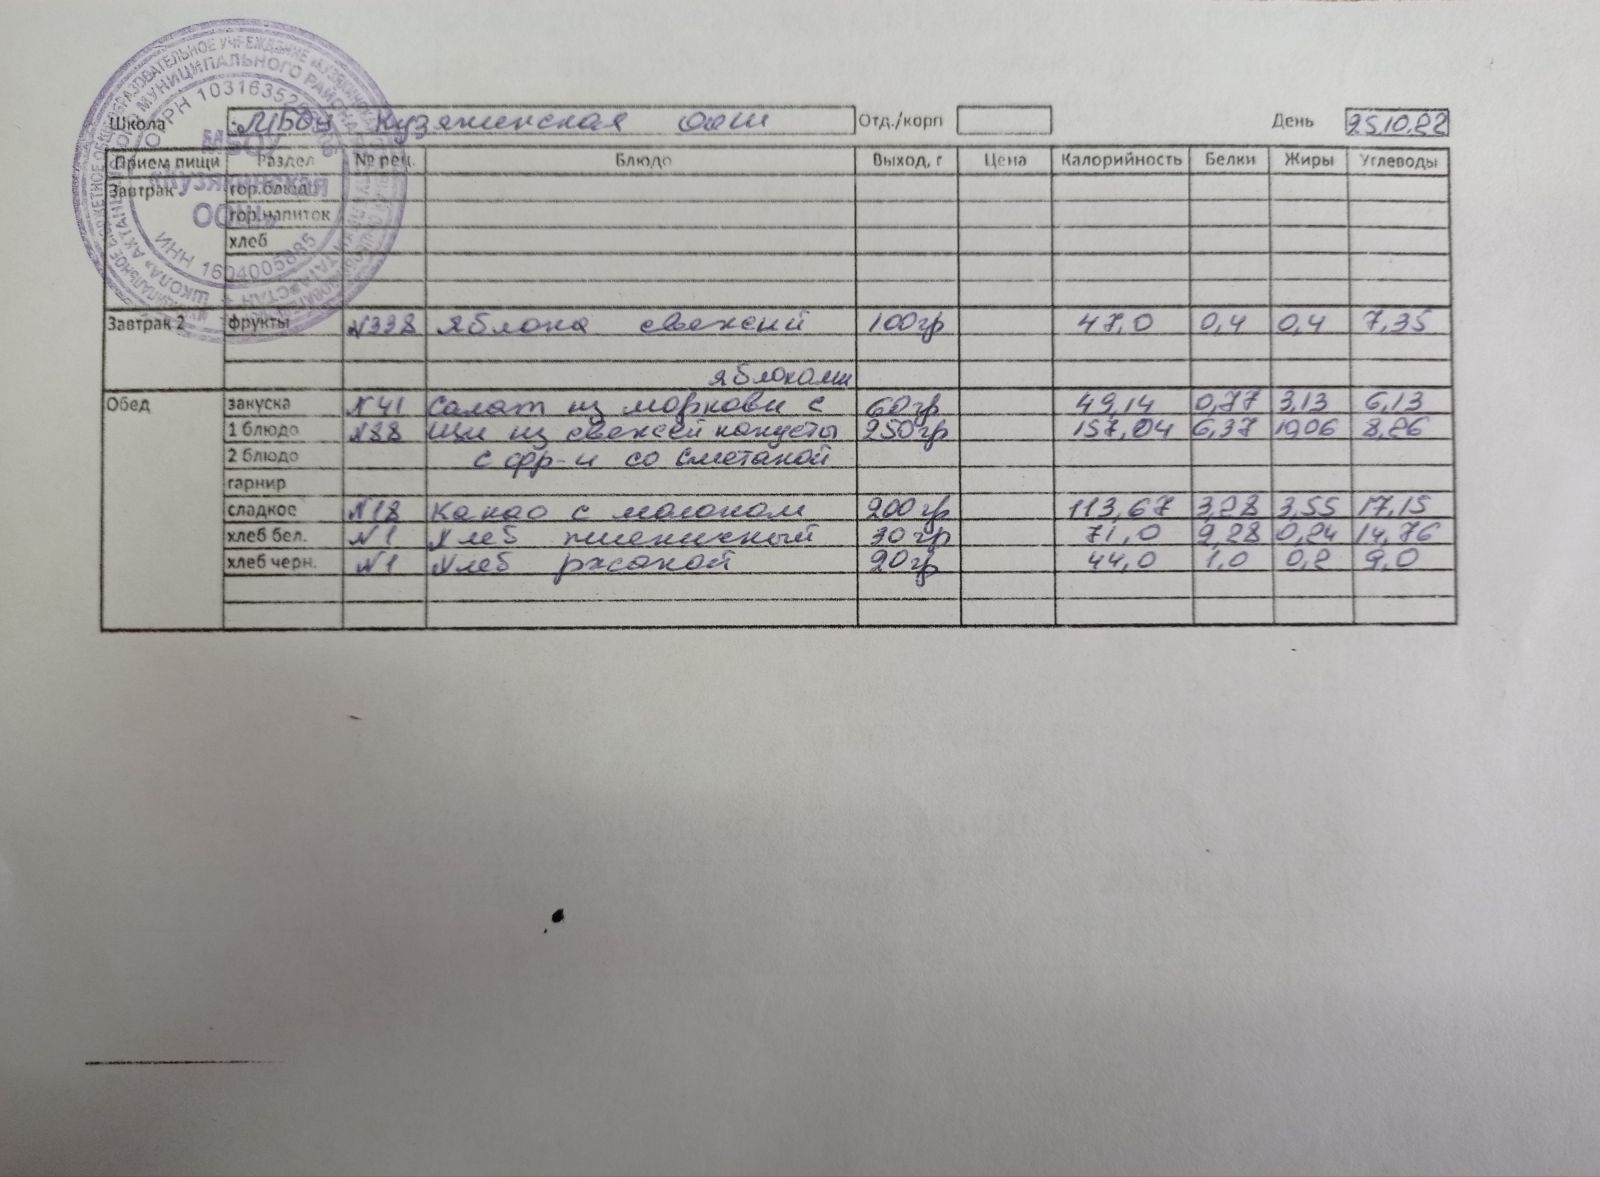 Школа МБОУ Кузякинская ООШ Отд./корп День 25.10.22
Прием пищи Раздел № рец. Блюдо Выход, г Цена Калорийность Белки Жиры Углеводы
Завтрак гор.блюдо
гор.напиток
хлеб
Завтрак 2 фрукты №338 Яблоко свежий 100гр 47,0 0,4 0,4 7,35
яблоками
Обед закуска №41 Салат из моркови с 60гр 49,14 0,77 3,13 6,13
1 блюдо №88 Щи из свежей капусты 250гр 157,04 6,37 10,06 8,26
2 блюдо с фр-и со сметаной
гарнир
сладкое №18 Какао с молоком 200гр 113,67 3,28 3,55 17,15
хлеб бел. №1 Хлеб пшеничный 30гр 71,0 2,28 0,24 14,76
хлеб черн. №1 Хлеб ржаной 20гр 44,0 1,0 0,2 9,0
МБОУ
«Кузякинская
ООШ»
ИНН 1604005885